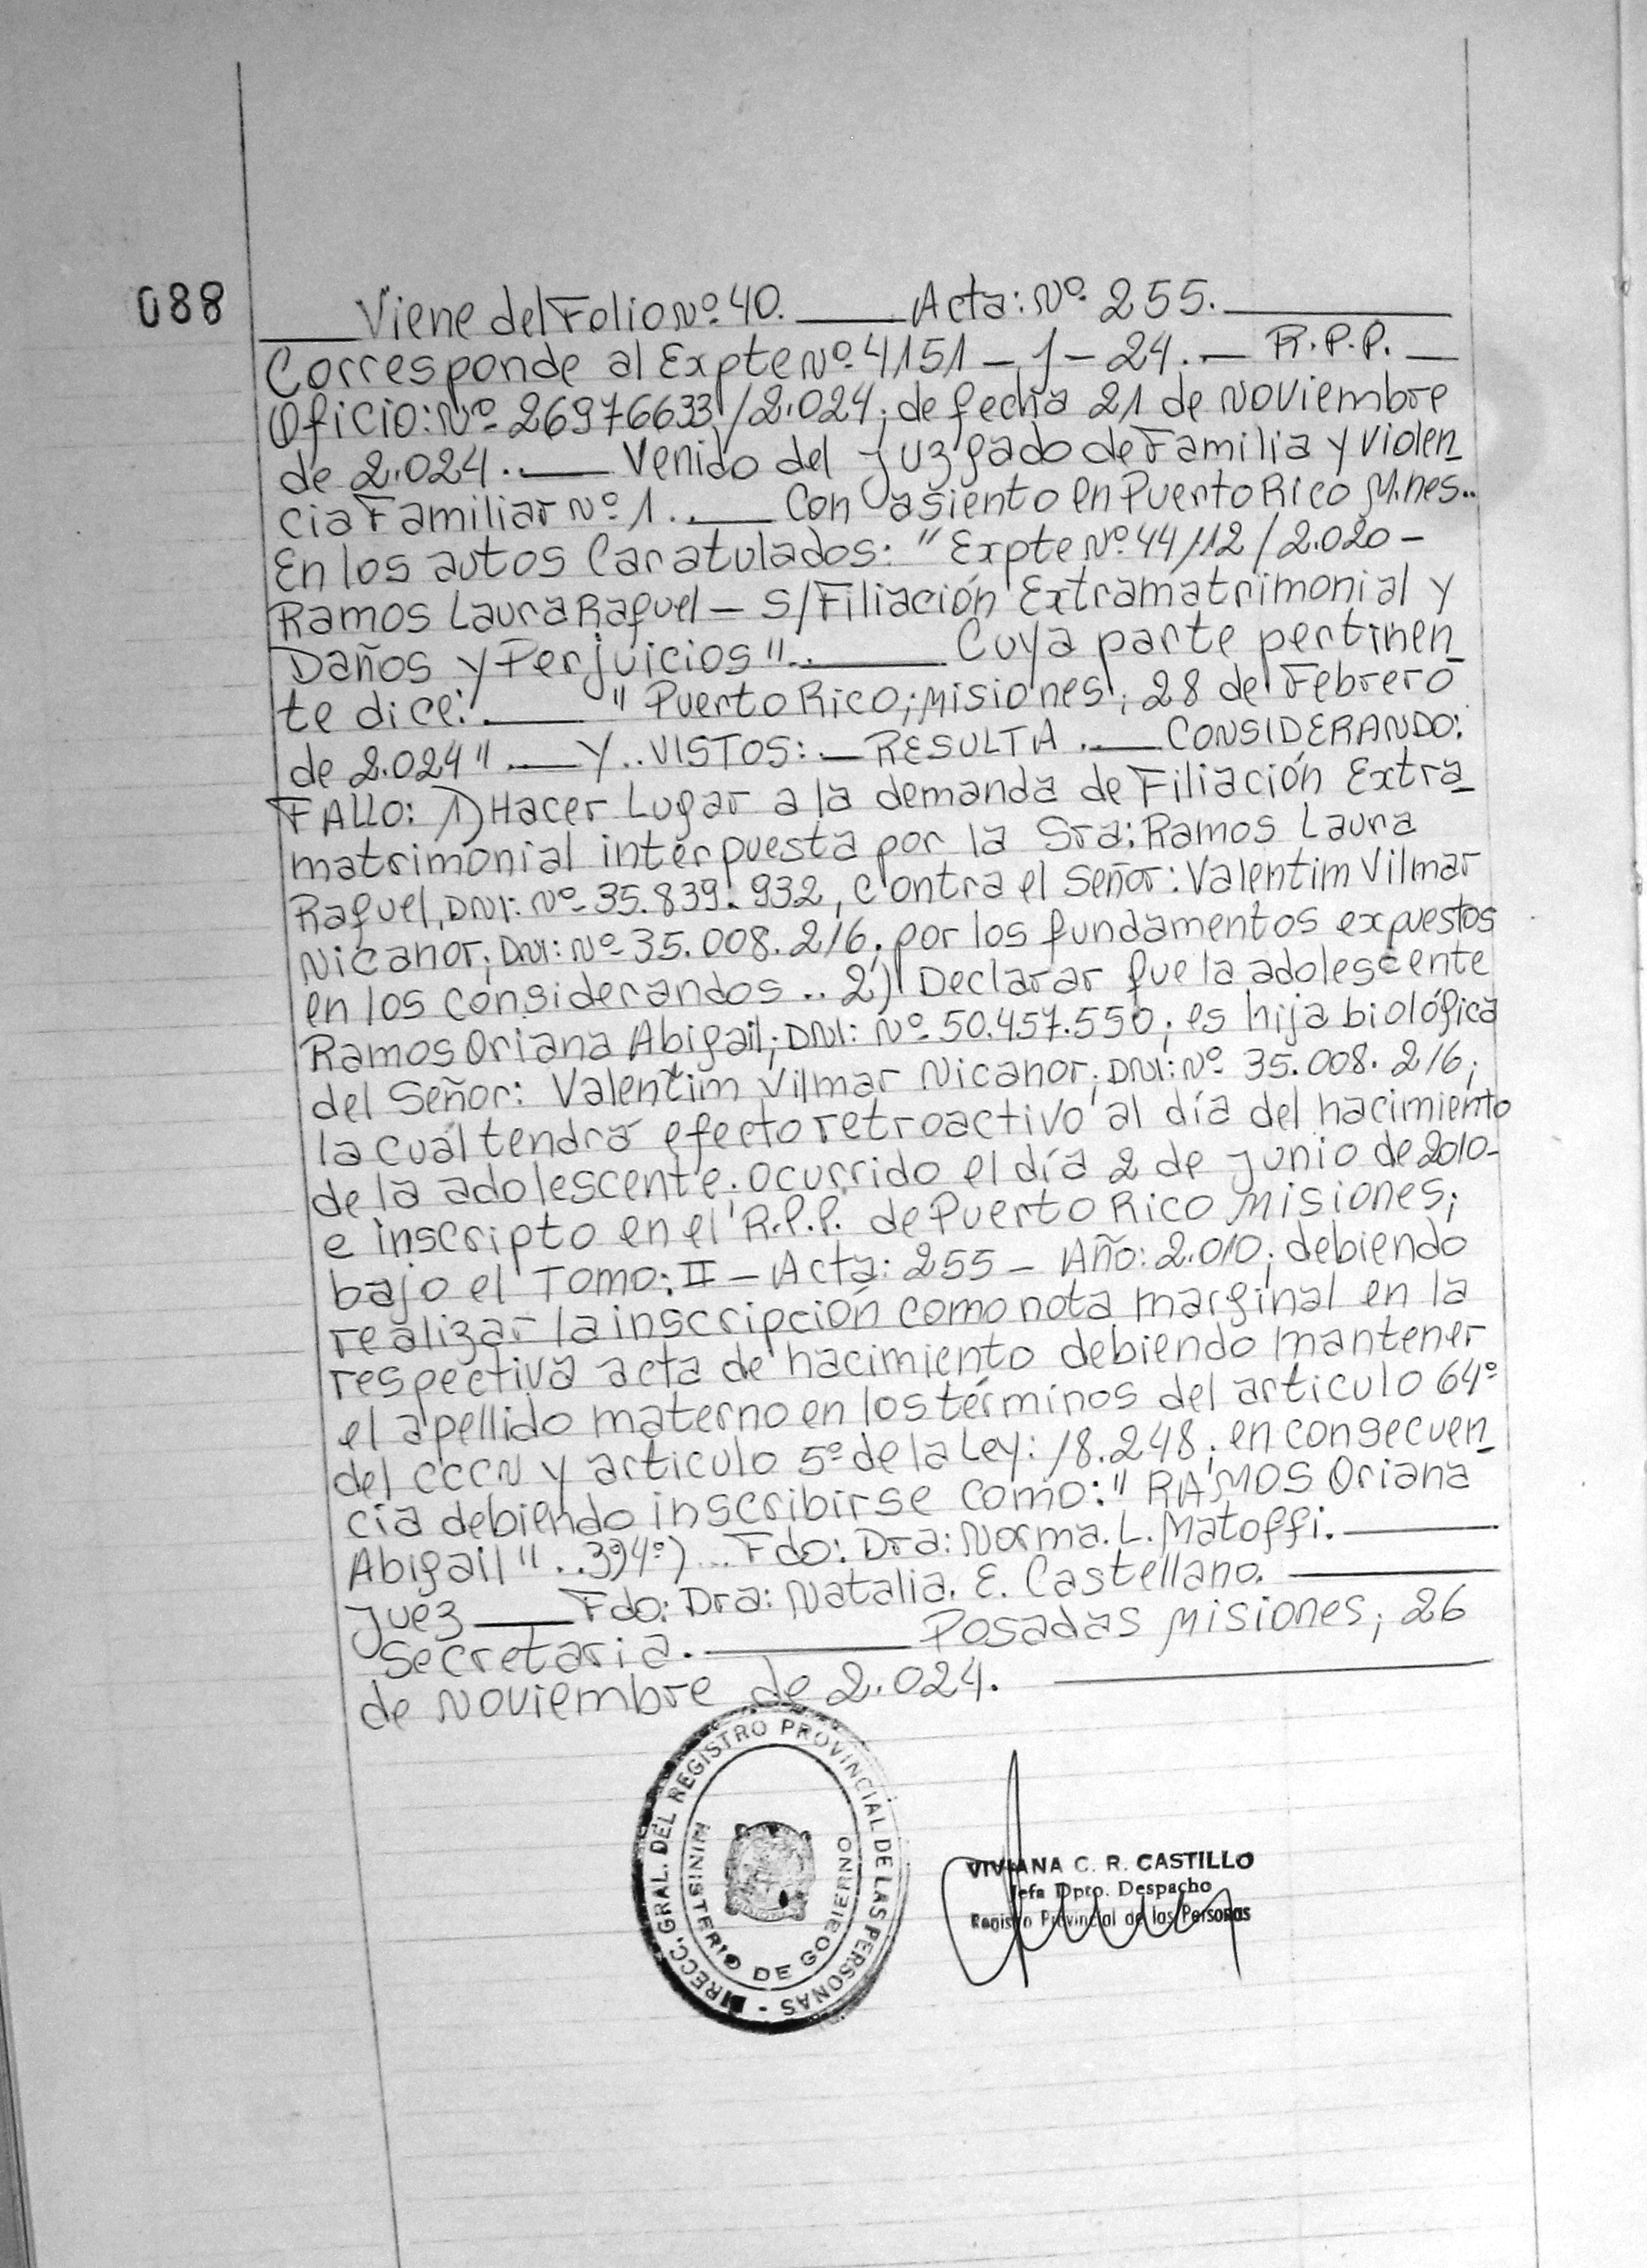 088
Viene del Folio Nº 40. Acta: Nº 255.
Corresponde al Expte Nº 4151-1-24.- R.P.P.
Oficio: Nº 26976633/2.024; de fecha 21 de Noviembre
de 2.024.. Venido del Juzgado de Familia y Violen
cia Familiar Nº 1.. Con asiento en Puerto Rico M.nes..
En los autos Caratulados: "Expte Nº 44112/2.020-
Ramos Laura Raquel - S/Filiación Extramatrimonial y
Daños y Perjuicios".. Cuya parte pertinen
te dice: "Puerto Rico; Misiones; 28 de Febrero
de 2.024".. Y.. VISTOS:. RESULTA.. CONSIDERANDO:
FALLO: 1) Hacer Lugar a la demanda de Filiación Extra
matrimonial interpuesta por la Sra: Ramos Laura
Raquel, DNI: Nº 35.839.932, contra el Señor: Valentim Vilmar
Nicanor; DNI: Nº 35.008.216; por los fundamentos expuestos
en los considerandos.. 2) Declarar que la adolescente
Ramos Oriana Abigail; DNI: Nº 50.457.550; es hija biológica
del Señor: Valentim Vilmar Nicanor; DNI: Nº 35.008.216;
la cual tendrá efecto retroactivo al día del nacimiento
de la adolescente. ocurrido el día 2 de Junio de 2010-
e inscripto en el R.P.P. de Puerto Rico Misiones;
bajo el Tomo: II - Acta: 255 - Año: 2.010; debiendo
realizar la inscripción como nota marginal en la
respectiva acta de nacimiento debiendo mantener
el apellido materno en los términos del articulo 64º
del CCCN y articulo 5º de la Ley: 18.248; en consecuen
cia debiendo inscribirse como: "RAMOS Oriana
Abigail"..394º)... Fdo: Dra: Norma. L. Matoffi.
Juez Fdo: Dra: Natalia. E. Castellano.
Secretaria. Posadas Misiones; 26
de Noviembre de 2.024.
DIRECC. GRAL. DEL REGISTRO PROVINCIAL DE LAS PERSONAS -
MINISTERIO DE GOBIERNO
VIVIANA C. R. CASTILLO
Jefa Dpto. Despacho
Registro Provincial de las Personas